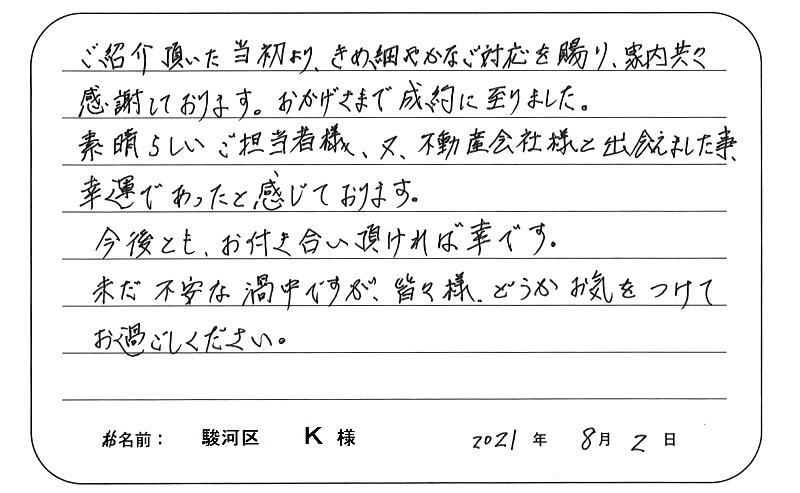 ご紹介頂いた当初より、きめ細やかなご対応を賜り、家内共々
感謝しております。おかげさまで成約に至りました。
素晴らしいご担当者様、又、不動産会社様と出会えました事、
幸運であったと感じております。
今後とも、お付き合い頂ければ幸です。
未だ不安な渦中ですが、皆々様、どうかお気をつけて
お過ごしください。
お名前： 駿河区 K 様 2021 年 8月 2 日